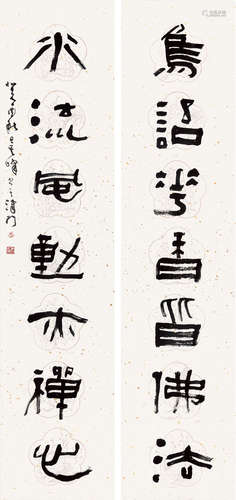 鳥語花香皆佛法
水流風動亦禪心